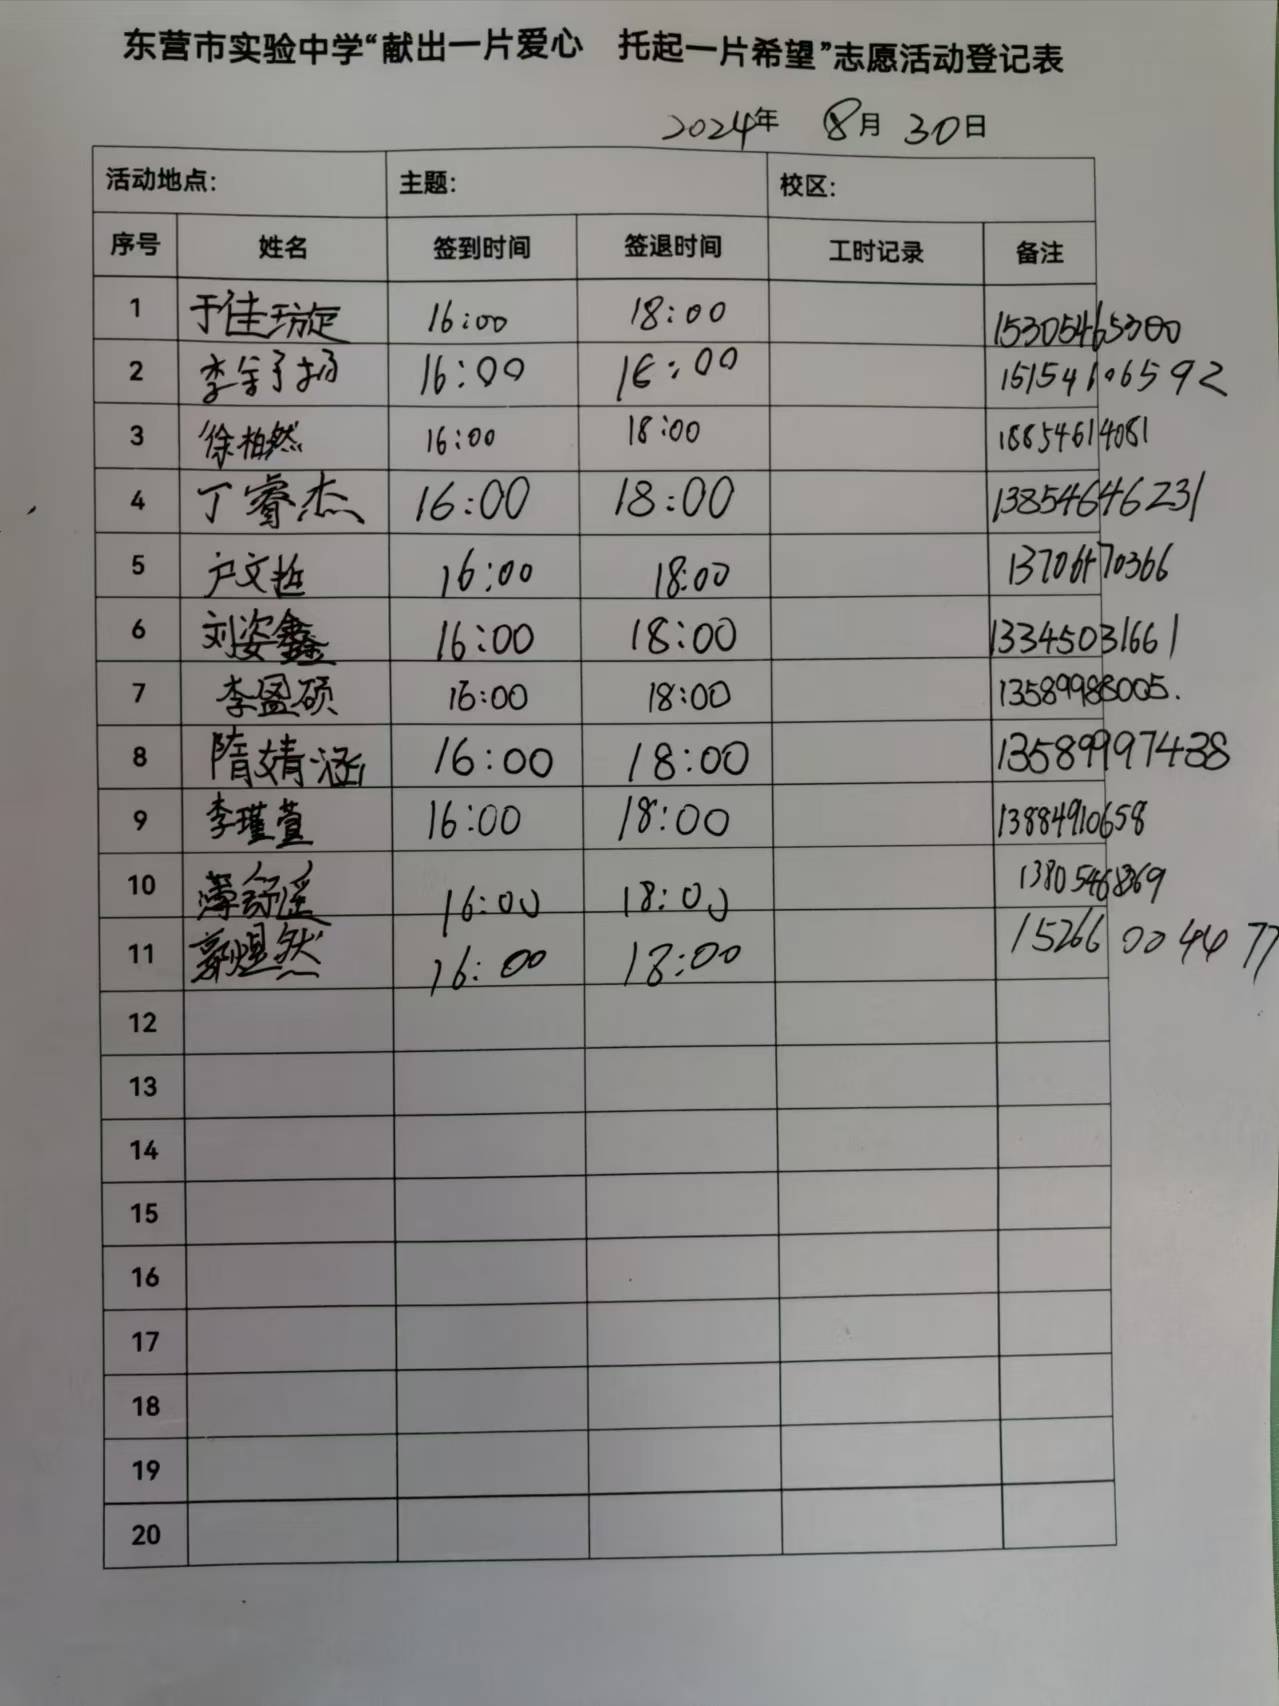 东营市实验中学“献出一片爱心 托起一片希望”志愿活动登记表
2024年 8月 30日
活动地点: 主题: 校区:
序号 姓名 签到时间 签退时间 工时记录 备注
1 于佳 16:00 18:00 15305465300
2 李 扬 16:00 16:00 15154606592
3 徐柏然 16:00 18:00 18854614081
4 丁睿杰 16:00 18:00 13854646231
5 卢文哲 16:00 18:00 13706470366
6 刘姿鑫 16:00 18:00 13345031661
7 李盈硕 16:00 18:00 13589988005.
8 隋婧涵 16:00 18:00 13589997438
9 李瑾萱 16:00 18:00 13884910658
10 薄舒遥 16:00 18:00
11 郭煜然 16:00 18:00 15266004477
12
13
14
15
16
17
18
19
20